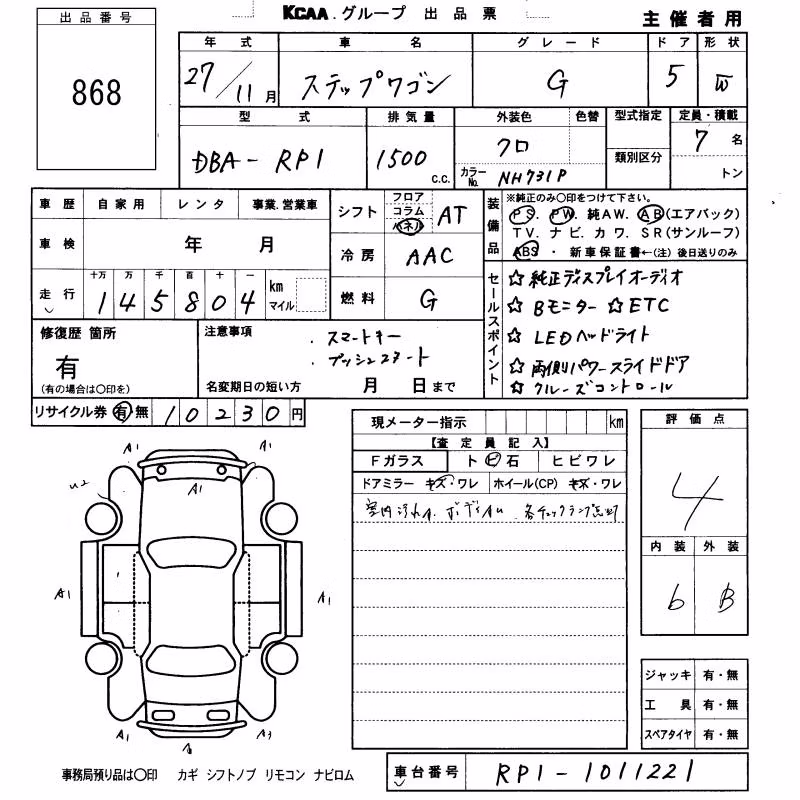 KCAA.グループ 出品票 主催者用
出品番号
868
年式 車名 グレード ドア 形状
27/11月 ステップワゴン G 5 W
型式 排気量 外装色 色替 型式指定 定員・積載
DBA-RP1 1500 C.C. クロ 7名
類別区分
カラーNo. NH731P トン
車歴 自家用 レンタ 事業.営業車
車検 年 月
走行 十万 万 千 百 十 一 km マイル
145804
シフト フロア コラム パネル AT
冷房 AAC
燃料 G
装備品
※純正のみ〇印をつけて下さい。
PS. PW. 純AW. AB(エアバック)
TV. ナビ. カワ. SR(サンルーフ)
ABS ・ 新車保証書←(注)後日送りのみ
セールスポイント
☆純正ディスプレイオーディオ
☆Bモニター ☆ETC
☆LEDヘッドライト
☆両側パワースライドドア
☆クルーズコントロール
修復歴 箇所
有
(有の場合は〇印を)
注意事項
・スマートキー
・プッシュスタート
名変期日の短い方 月 日まで
リサイクル券 有 無 10230円
現メーター指示 km
【査定員記入】
Fガラス トビ石 ヒビワレ
ドアミラー キズ・ワレ ホイール(CP) キズ・ワレ
室内汚れA.
評価点
4
内装 外装
b B
A1 A1
U2 A1
A1 A1
A1 A1
ジャッキ 有・無
工具 有・無
スペアタイヤ 有・無
事務局預り品は〇印 カギ シフトノブ リモコン ナビロム
車台番号 RP1-1011221